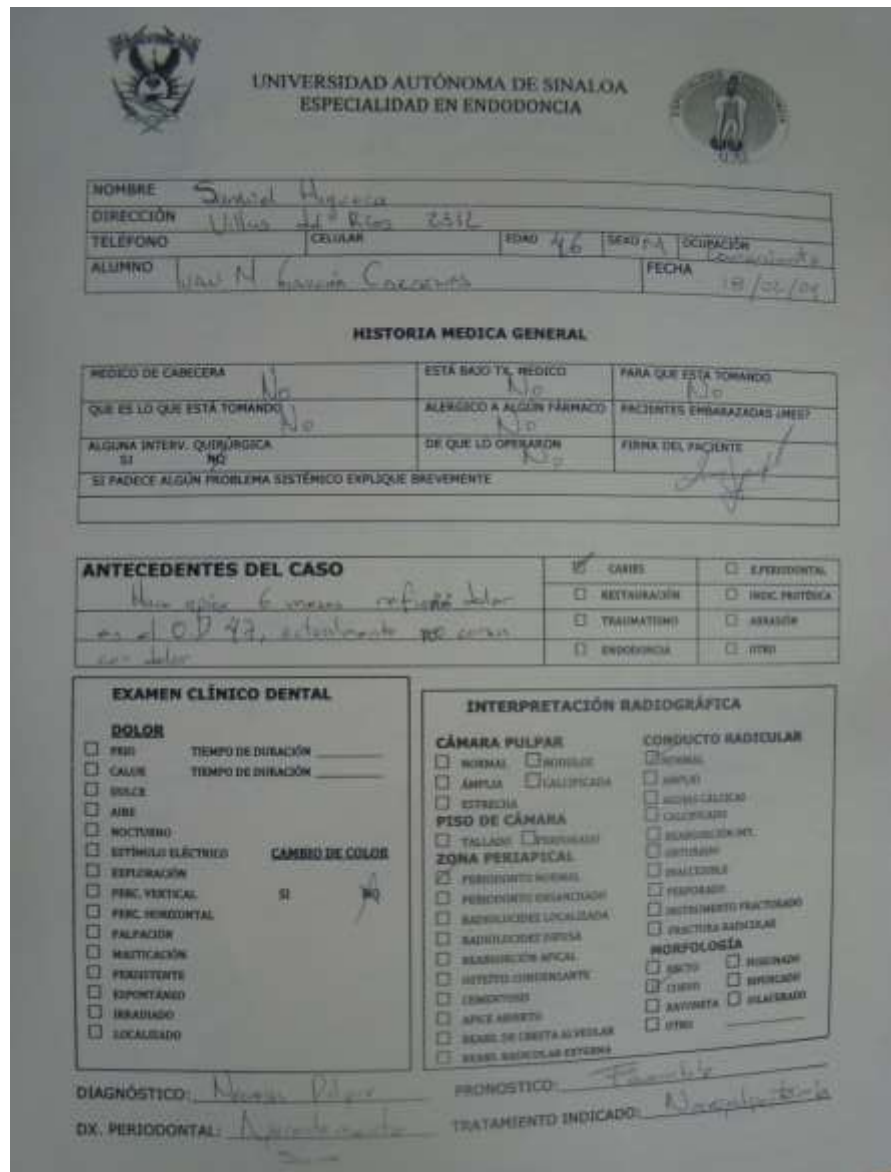 UNIVERSIDAD AUTÓNOMA DE SINALOA
ESPECIALIDAD EN ENDODONCIA
NOMBRE Samuel Higuera
DIRECCIÓN Villas del Rios 2312
TELÉFONO CELULAR EDAD 46 SEXO M OCUPACIÓN Comerciante
ALUMNO Ivan N. García Cárdenas FECHA 18/02/09
HISTORIA MEDICA GENERAL
MEDICO DE CABECERA No ESTÁ BAJO TX. MÉDICO No PARA QUE ESTA TOMANDO No
QUE ES LO QUE ESTÁ TOMANDO No ALERGICO A ALGÚN FÁRMACO No PACIENTES EMBARAZADAS ¿MES?
ALGUNA INTERV. QUIRÚRGICA SI NO DE QUE LO OPERARON No FIRMA DEL PACIENTE
SI PADECE ALGÚN PROBLEMA SISTÉMICO EXPLIQUE BREVEMENTE
ANTECEDENTES DEL CASO
Hace 6 meses dolor
en el OD 47, actualmente no
con dolor
CARIES E.PERIODONTAL
RESTAURACIÓN INDIC. PROTÉSICA
TRAUMATISMO ABRASIÓN
ENDODONCIA OTRO
EXAMEN CLÍNICO DENTAL
DOLOR
FRIO TIEMPO DE DURACIÓN
CALOR TIEMPO DE DURACIÓN
DULCE
AIRE
NOCTURNO
ESTÍMULO ELÉCTRICO CAMBIO DE COLOR
EXPLORACIÓN
PERC. VERTICAL SI NO
PERC. HORIZONTAL
PALPACIÓN
MASTICACIÓN
PERSISTENTE
ESPONTÁNEO
IRRADIADO
LOCALIZADO
INTERPRETACIÓN RADIOGRÁFICA
CÁMARA PULPAR
NORMAL NODULOS
AMPLIA CALCIFICADA
ESTRECHA
PISO DE CÁMARA
TALLADO PERFORADO
ZONA PERIAPICAL
PERIODONTO NORMAL
PERIODONTO ENSANCHADO
RADIOLUCIDEZ LOCALIZADA
RADIOLUCIDEZ DIFUSA
REABSORCIÓN APICAL
OSTEÍTIS CONDENSANTE
CEMENTOSIS
APICE ABIERTO
REABS. DE CRESTA ALVEOLAR
REABS. RADICULAR EXTERNA
CONDUCTO RADICULAR
NORMAL
AMPLIO
AGUJAS CÁLCICAS
CALCIFICADO
REABSORCIÓN INT.
OBTURADO
INACCESIBLE
PERFORADO
INSTRUMENTO FRACTURADO
FRACTURA RADICULAR
MORFOLOGÍA
RECTO FUSIONADO
CURVO BIFURCADO
BAYONETA DILACERADO
OTRO
DIAGNÓSTICO: Necrosis Pulpar PRONOSTICO: Favorable
DX. PERIODONTAL: Aparentemente TRATAMIENTO INDICADO: Necropulpectomía